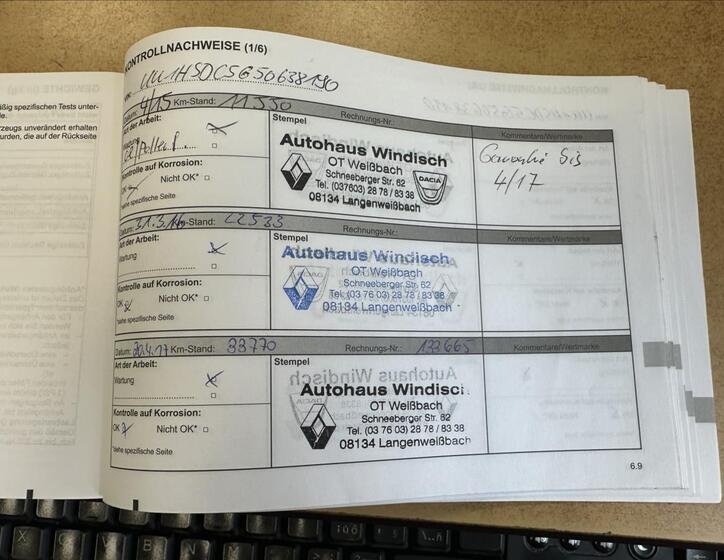 GEWICHTE (in kg)
ßig spezifischen Tests unter-
le.
rzeugs unverändert erhalten
urden, die auf der Rückseite
KONTROLLNACHWEISE (1/6)
UU1HSDCSG50638190
Datum: 4/15 Km-Stand: 11550 Rechnungs-Nr.:
Art der Arbeit: Stempel Kommentare/Wertmarke
Autohaus Windisch
OT Weißbach
Schneeberger Str. 62
Tel. (037603) 28 78 / 83 38
08134 Langenweißbach
DACIA
4/17
Kontrolle auf Korrosion:
OK Nicht OK*
*siehe spezifische Seite
Datum: 31.3.16 Km-Stand: 22533 Rechnungs-Nr.:
Art der Arbeit: Stempel Kommentare/Wertmarke
Wartung
Autohaus Windisch
OT Weißbach
Schneeberger Str. 62
Tel. (03 76 03) 28 78 / 83 38
08134 Langenweißbach
Kontrolle auf Korrosion:
OK Nicht OK*
*siehe spezifische Seite
Datum: 20.4.17 Km-Stand: 33770 Rechnungs-Nr.: 133665 Kommentare/Wertmarke
Art der Arbeit: Stempel
Wartung
Autohaus Windisc
OT Weißbach
Schneeberger Str. 62
Tel. (03 76 03) 28 78 / 83 38
08134 Langenweißbach
Kontrolle auf Korrosion:
OK Nicht OK*
*siehe spezifische Seite
6.9